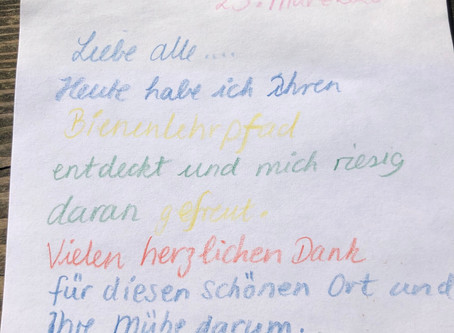 23. März
Liebe alle....
Heute habe ich Ihren
Bienenlehrpfad
entdeckt und mich riesig
daran gefreut.
Vielen herzlichen Dank
für diesen schönen Ort und
Ihre Mühe darum.